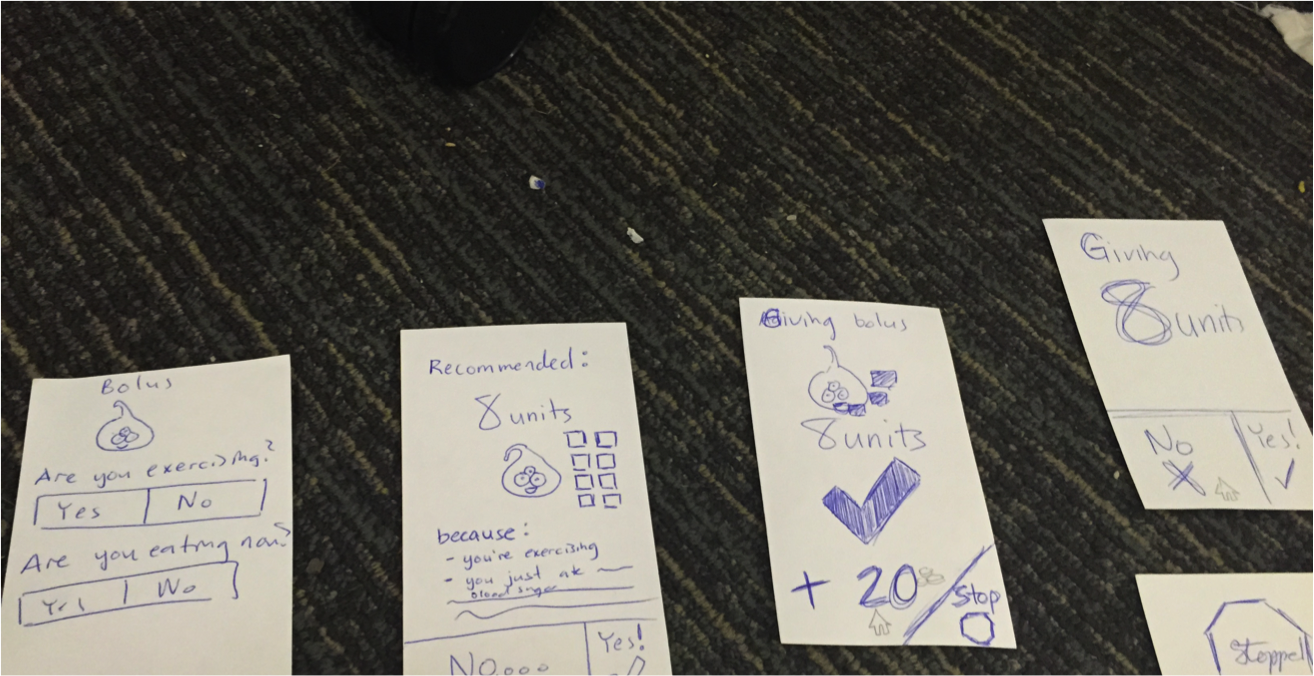 Bolus
Are you exercising?
Yes No
Are you eating now?
Yes No
Recommended:
8 units
because:
- you're exercising
- you just ate
blood sugar
No...
Yes!
Giving bolus
8 units
+ 20
Stop
Giving
8 units
No
Yes!
Stopped